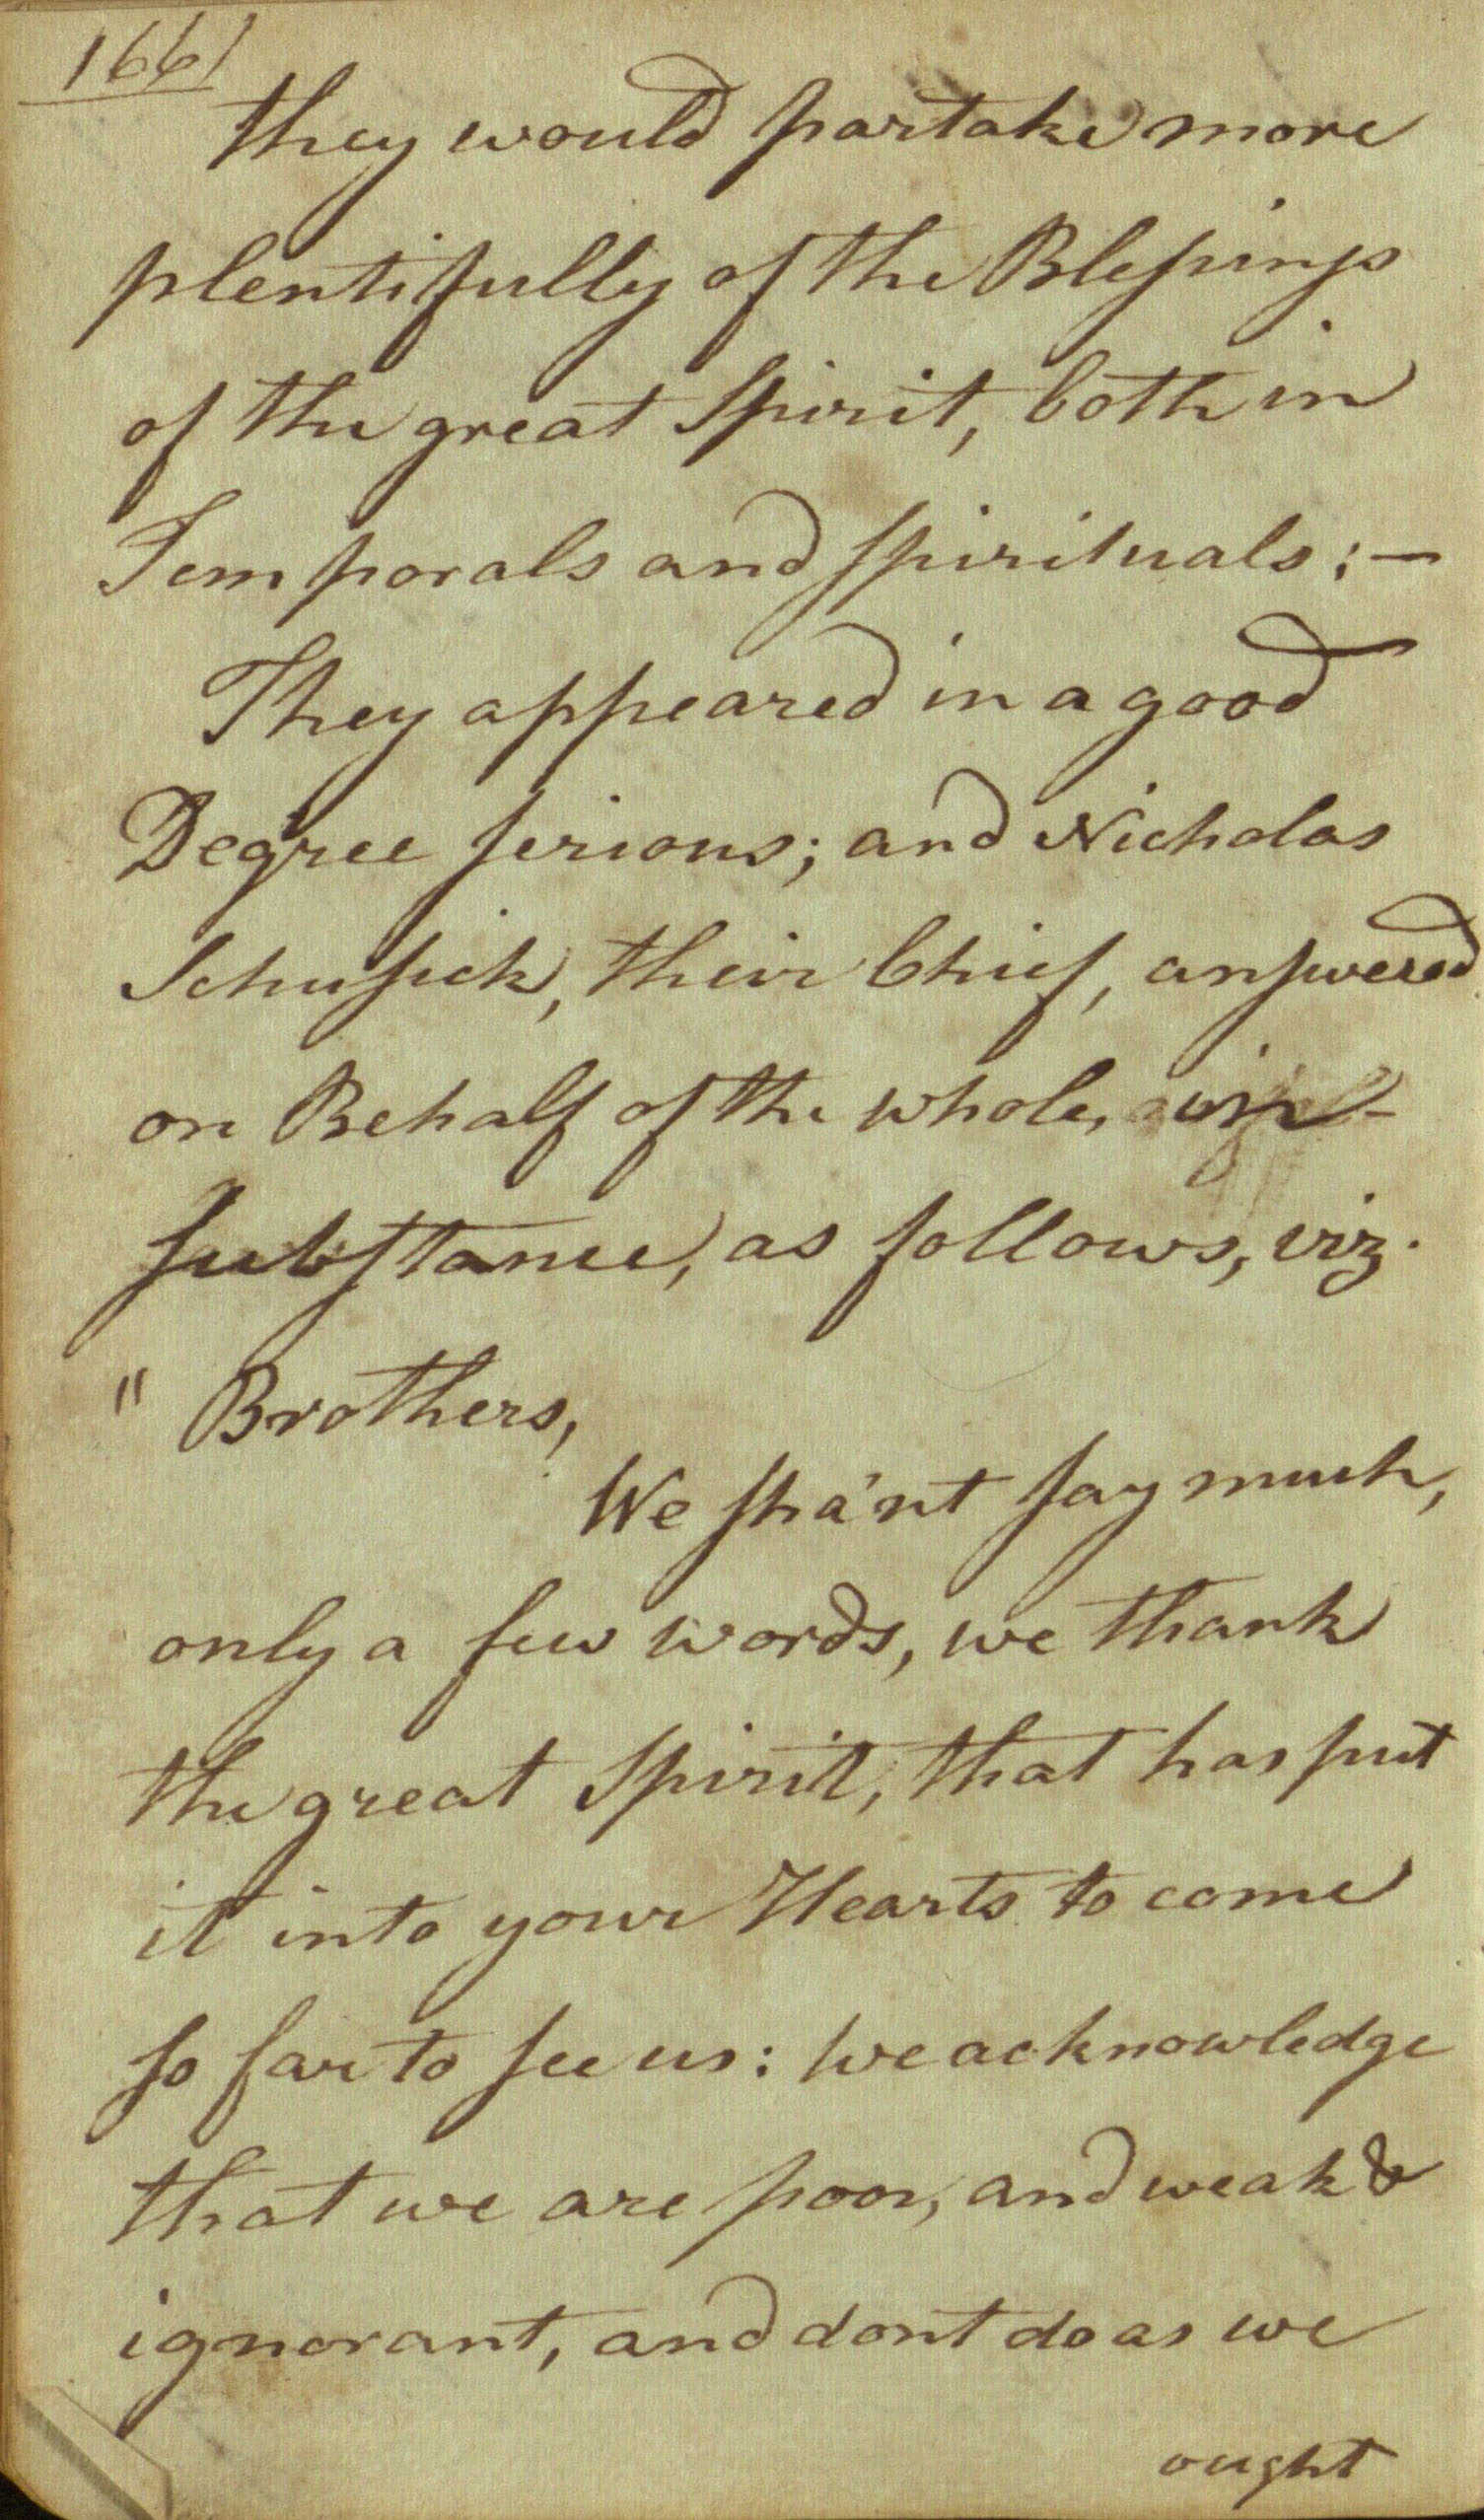 166
they would partake more
plentifully of the Blessings
of the great Spirit, both in
Temporals and spirituals; —
They appeared in a good
Degree serious; and Nicholas
Schusick, their Chief, answered
on Behalf of the whole, in
substance, as follows, viz.
" Brothers,
We sha'nt say much,
only a few words, we thank
the great Spirit, that has put
it into your Hearts to come
so far to see us: we acknowledge
that we are poor, and weak &
ignorant, and dont do as we
ought